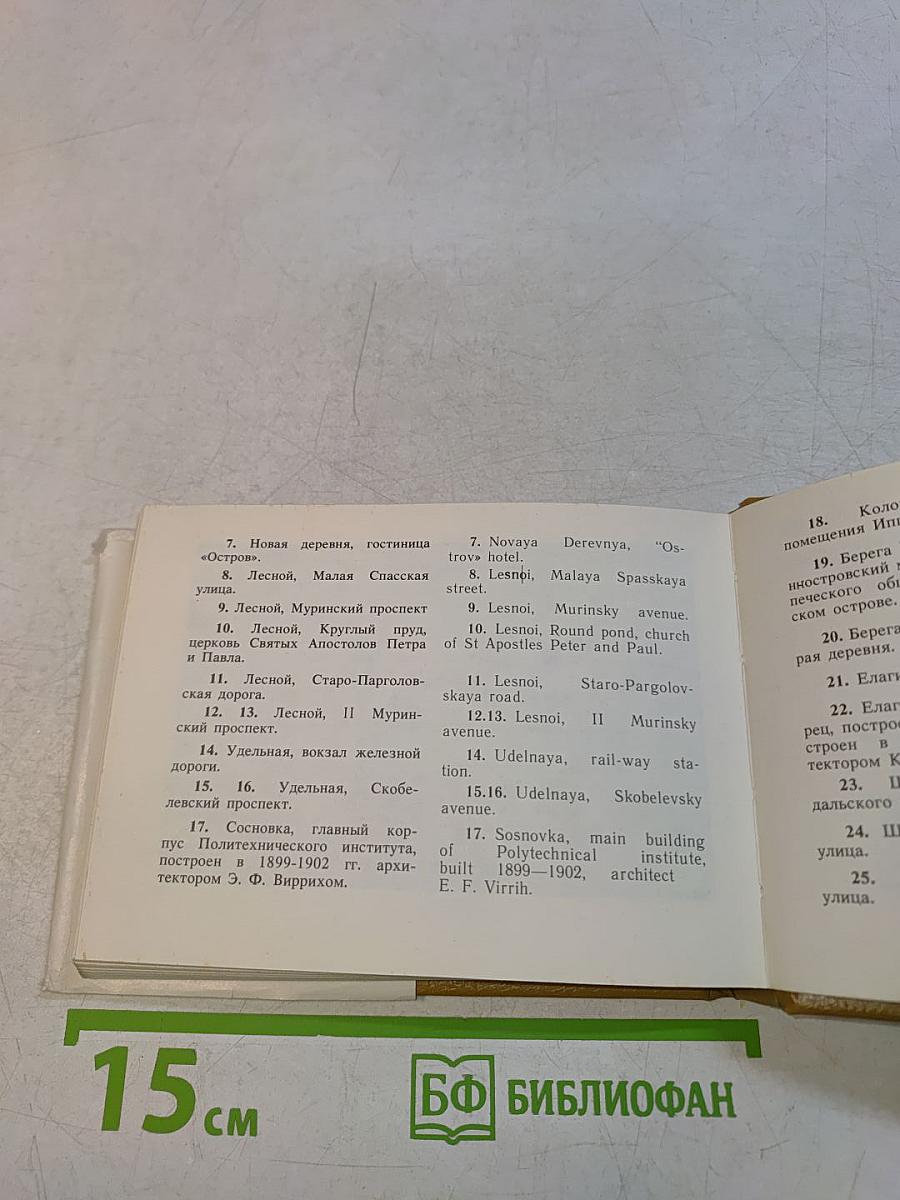 7. Новая деревня, гостиница
«Остров».
8. Лесной, Малая Спасская
улица.
9. Лесной, Муринский проспект
10. Лесной, Круглый пруд,
церковь Святых Апостолов Петра
и Павла.
11. Лесной, Старо-Парголов-
ская дорога.
12. 13. Лесной, II Мурин-
ский проспект.
14. Удельная, вокзал железной
дороги.
15. 16. Удельная, Скобе-
левский проспект.
17. Сосновка, главный кор-
пус Политехнического института,
построен в 1899-1902 гг. архи-
тектором Э. Ф. Виррихом.
7. Novaya Derevnya, “Os-
trov» hotel.
8. Lesnoi, Malaya Spasskaya
street.
9. Lesnoi, Murinsky avenue.
10. Lesnoi, Round pond, church
of St Apostles Peter and Paul.
11. Lesnoi, Staro-Pargolov-
skaya road.
12.13. Lesnoi, II Murinsky
avenue.
14. Udelnaya, rail-way sta-
tion.
15.16. Udelnaya, Skobelevsky
avenue.
17. Sosnovka, main building
of Polytechnical institute,
built 1899—1902, architect
E. F. Virrih.
18. Коло
помещения Ипп
19. Берега
нностровский
печеского общ
ском острове.
20. Берега
рая деревня.
21. Елаги
22. Елаг
рец, построе
строен в
тектором К
23. Ш
дальского
24. Ш
улица.
25.
улица.
15 см
БФ БИБЛИОФАН